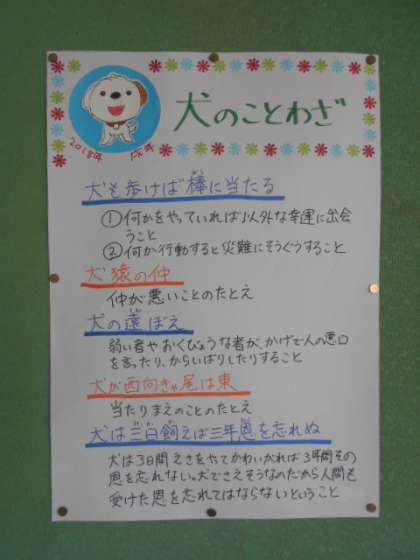 2018年 戌年
犬のことわざ
犬も歩けば棒に当たる
①何かをやっていれば以外な幸運に出会
うこと
②何か行動すると災難にそうぐうすること
犬猿の仲
仲が悪いことのたとえ
犬の遠ぼえ
弱い者やおくびょうな者が、かげで人の悪口
を言ったり、からいばりしたりすること
犬が西向きゃ尾は東
当たりまえのことのたとえ
犬は三日飼えば三年恩を忘れぬ
犬は3日間えさをやてかわいがれば3年間その
恩を忘れない。犬でさえそうなのだから人間も
受けた恩を忘れてはならないということ